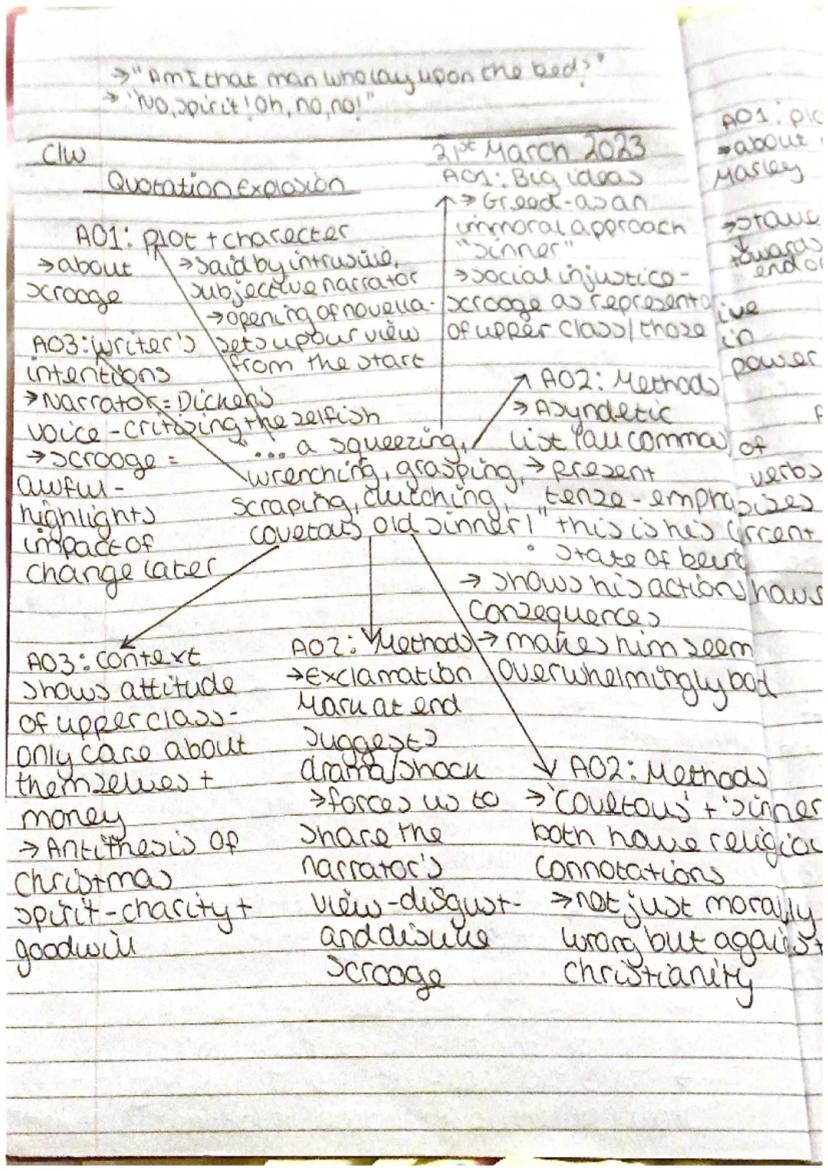 →"Am I that man who lay upon the bed?"
→"No, spirit! Oh, no, no!"
C/W
21st March 2023
Quotation Explosion
AO1: plot + charecter
→about
scrooge
→said by intrusive,
subjective narrator
→opening of novella-
sets up our view
from the start
AO1: Big ideas
→Greed-as an
immoral approach
"sinner"
→social injustice-
scrooge as representative
of upper class/those in
power
AO3: writer's
intentions
→Narrator = Dickens
voice-critising the selfish
→scrooge =
awful-
highlights
impact of
change later
"... a squeezing,
wrenching, grasping,
scraping, clutching,
covetous old sinner!"
AO2: Methods
→Asyndetic
list (all commas) of
verbs
→present
tense-emphasizes
this is his current
state of being
→shows his actions have
consequences
→makes him seem
overwhelmingly bad
AO3: context
shows attitude
of upper class-
only care about
themselves +
money
→Antithesis of
christmas
spirit-charity +
goodwill
AO2: Methods
→Exclamation
mark at end
suggests
drama/shock
→forces us to
share the
narrator's
view-disgust-
and dislike
scrooge
AO2: Methods
→'covetous' + 'sinner
both have religiou
connotations
→not just morally
wrong but agaist
christianity
AO1: plo
→about
Marley
→stave
towards
end o